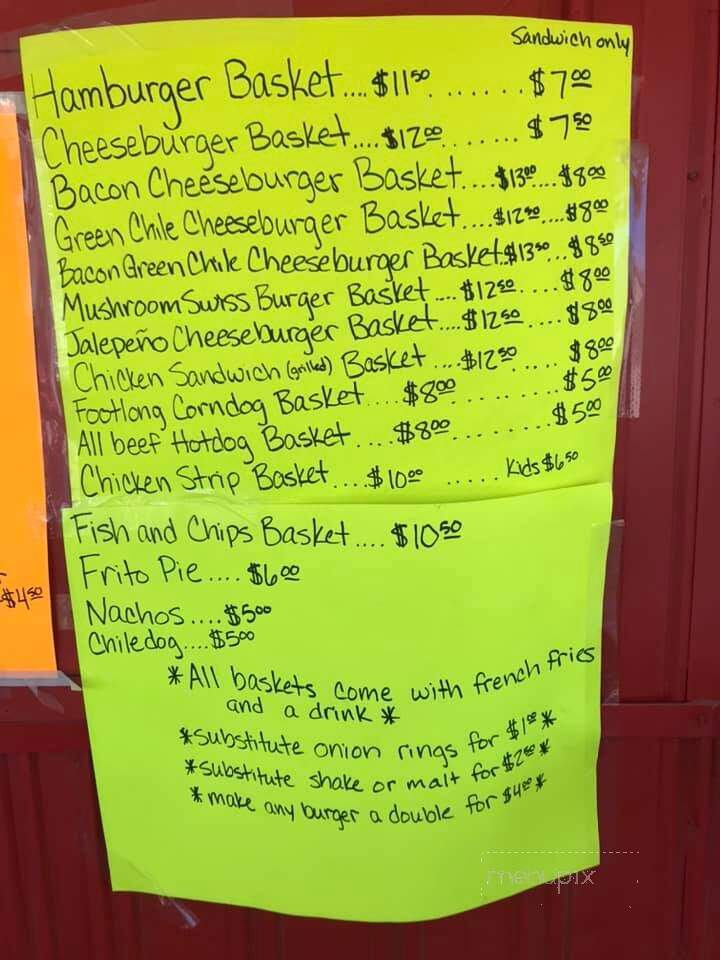 Sandwich only
Hamburger Basket....$11⁵⁰.......$7⁰⁰
Cheeseburger Basket....$12⁰⁰.......$7⁵⁰
Bacon Cheeseburger Basket....$13⁰⁰....$8⁰⁰
Green Chile Cheeseburger Basket....$12⁵⁰....$8⁰⁰
Bacon Green Chile Cheeseburger Basket..$13⁵⁰...$8⁵⁰
Mushroom Swiss Burger Basket....$12⁵⁰....$8⁰⁰
Jalepeño Cheeseburger Basket....$12⁵⁰....$8⁰⁰
Chicken Sandwich (grilled) Basket....$12⁵⁰....$8⁰⁰
Footlong Corndog Basket....$8⁰⁰.........$5⁰⁰
All beef Hotdog Basket....$8⁰⁰.........$5⁰⁰
Chicken Strip Basket....$10⁰⁰.....Kids $6⁵⁰
Fish and Chips Basket....$10⁵⁰
Frito Pie....$6⁰⁰
$4⁵⁰
Nachos....$5⁰⁰
Chiledog....$5⁰⁰
*All baskets come with french fries
and a drink*
*substitute onion rings for $1⁰⁰*
*substitute shake or malt for $2⁵⁰*
*make any burger a double for $4⁰⁰*
menupix